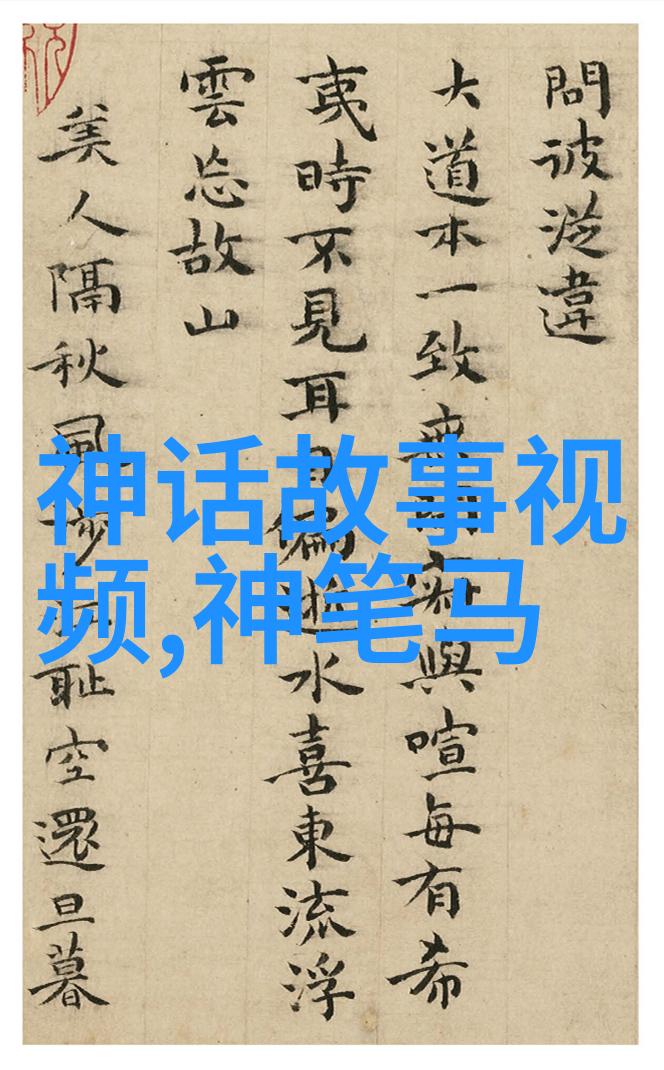 問彼淫違
大道本一致無明寂與喧每有希
夷時不見耳目偏逝水喜東流浮
雲忘故山
美人隔秋風恥空還旦暮
神话故事视
频,神笔马